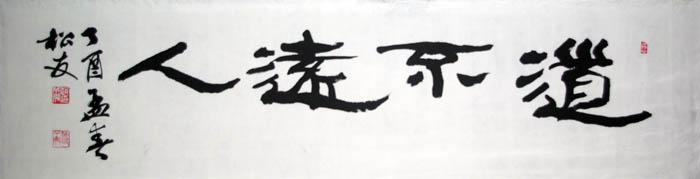 道不遠人
乙酉孟春
松友